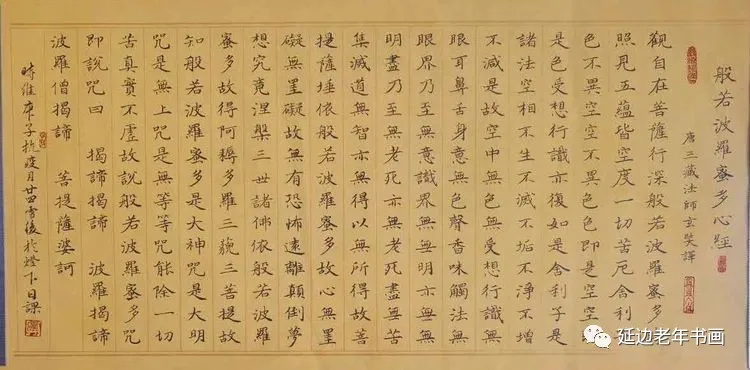 般若波羅蜜多心經
唐三藏法師玄奘譯
觀自在菩薩行深般若波羅蜜多
照見五蘊皆空度一切苦厄舍利
色不異空空不異色色即是空空
是色受想行識亦復如是舍利子是
諸法空相不生不滅不垢不淨不增
不減是故空中無色無受想行識無
眼耳鼻舌身意無色聲香味觸法無
眼界乃至無意識界無無明亦無無
明盡乃至無老死亦無老死盡無苦
集滅道無智亦無得以無所得故菩
提薩埵依般若波羅蜜多故心無罣
礙無罣礙故無有恐怖遠離顛倒夢
想究竟涅槃三世諸佛依般若波羅
蜜多故得阿耨多羅三藐三菩提故
知般若波羅蜜多是大神咒是大明
咒是無上咒是無等等咒能除一切
苦真實不虛故說般若波羅蜜多咒
即說咒曰 揭諦揭諦 波羅揭諦
波羅僧揭諦 菩提薩婆訶
時維庚子抗疫月廿四雪後於燈下日課
延边老年书画